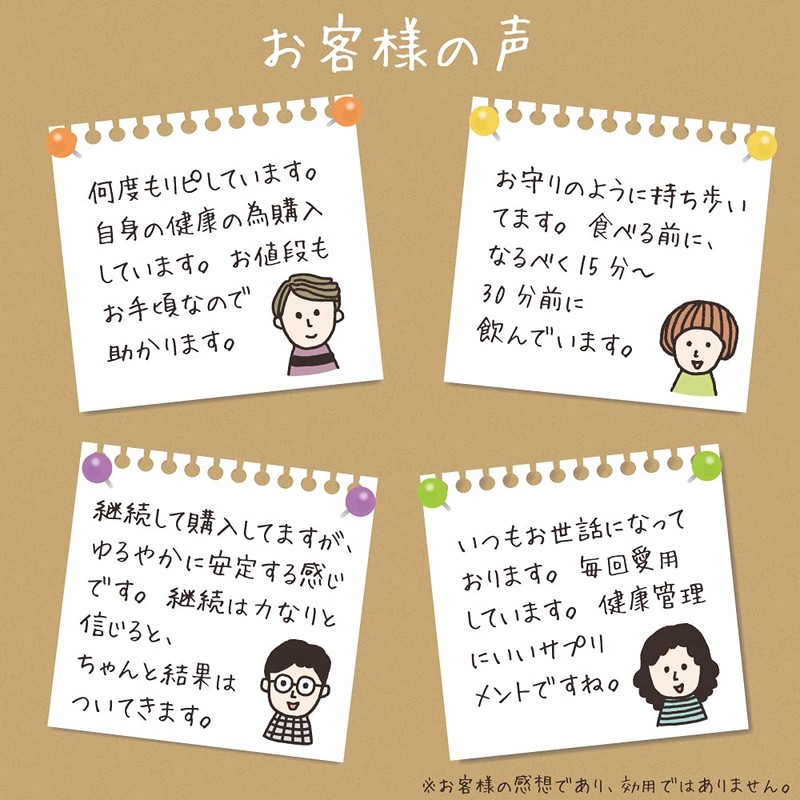 お客様の声
何度もリピしています。
自身の健康の為購入
しています。お値段も
お手頃なので
助かります。
お守りのように持ち歩い
てます。食べる前に、
なるべく15分〜
30分前に
飲んでいます。
継続して購入してますが、
ゆるやかに安定する感じ
です。継続は力なりと
信じると、
ちゃんと結果は
ついてきます。
いつもお世話になって
おります。毎回愛用
しています。健康管理
にいいサプリ
メントですね。
※お客様の感想であり、効用ではありません。